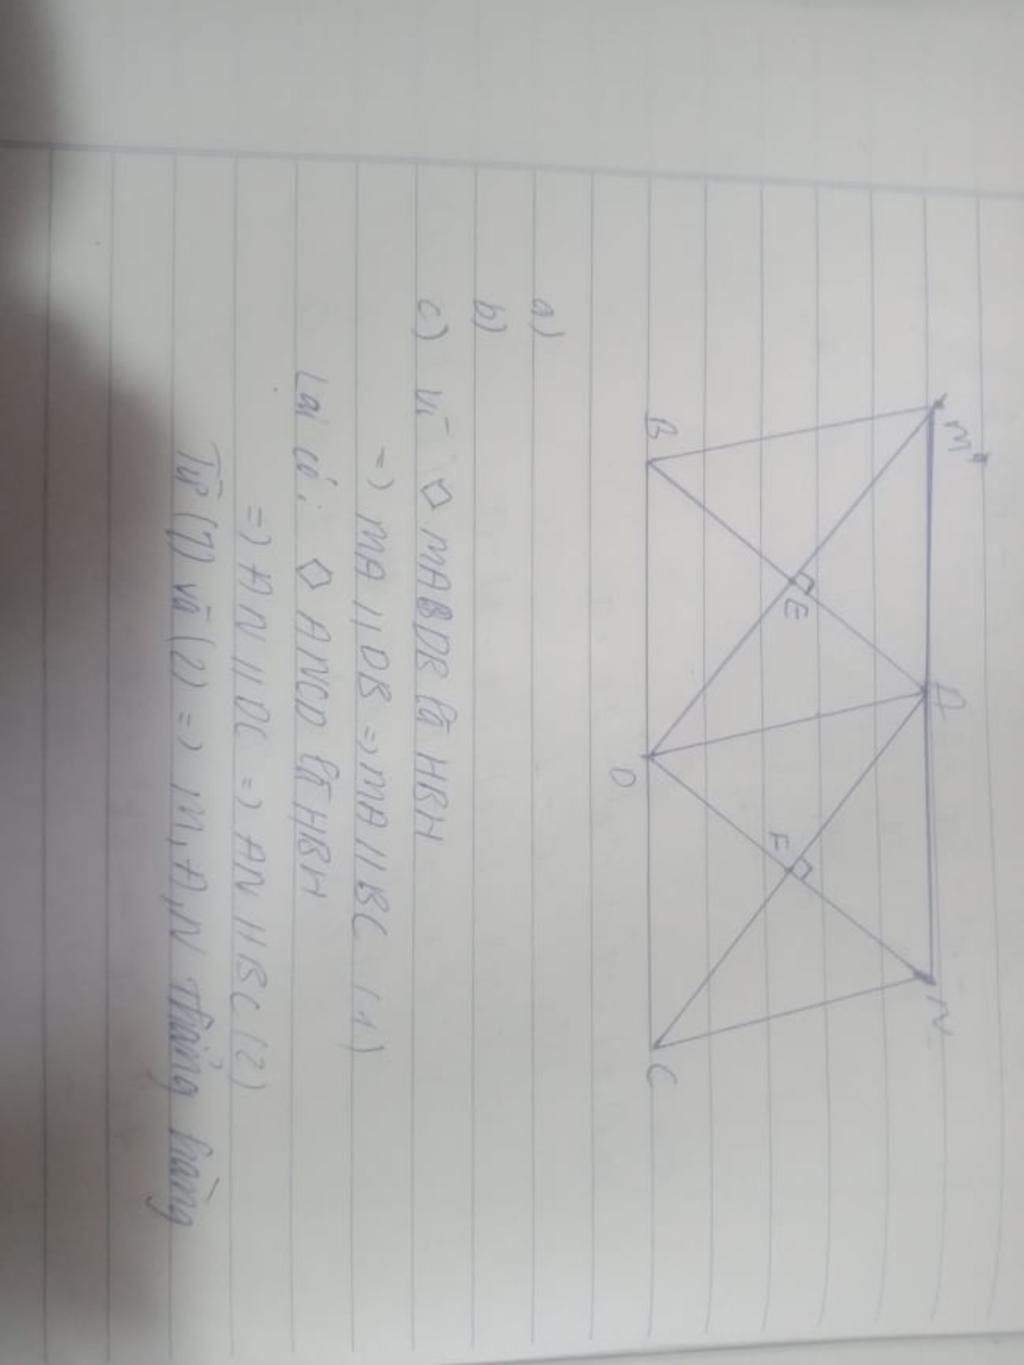 M A N
E F
B D C
a)
b)
c) Vì ◇ MABDB là HBH
=) MA // DB =) MA // BC (1)
Lại có: ◇ ANCD là HBH
=) AN // DC =) AN // BC (2)
Từ (1) và (2) =) M, A, N thẳng hàng